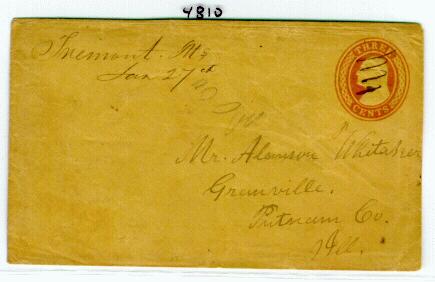 4810
Tremont. Me
Jan 27th
THREE
CENTS
Mr. Alanson Whitaker
Granville.
Putnam Co.
Ill.